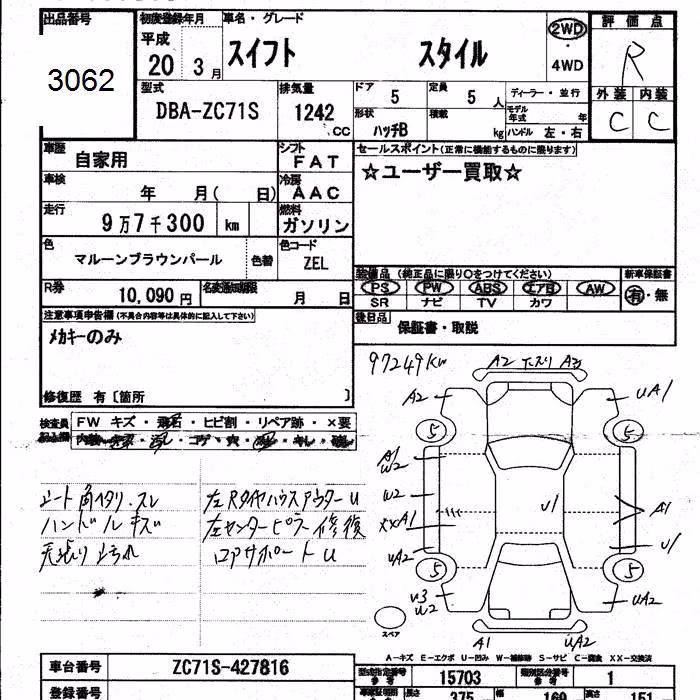 出品番号
3062
初度登録年月
平成
20 3月
車名・グレード
スイフト スタイル
2WD
4WD
評価点
R
外装 内装
C C
型式
DBA-ZC71S
排気量
1242 cc
ドア
5
定員
5 人
形状
ハッチB
積載
kg
ディーラー・並行
モデル年式 年
ハンドル 左・右
車歴
自家用
シフト
FAT
車検
年 月( 日)
冷房
AAC
走行
9万7千300 km
燃料
ガソリン
色
マルーンブラウンパール
色替
色コード
ZEL
R券
10,090円
名変通知期限
月 日
セールスポイント(正常に機能するものに限ります)
☆ユーザー買取☆
装備品(純正品に限り○をつけてください)
PS PW ABS エアB AW
SR ナビ TV カワ
新車保証書
有・無
後日品
保証書・取説
注意事項申告欄(不具合内容等は具体的に記入して下さい)
メカキーのみ
修復歴 有〔箇所 〕
検査員
記入欄
FW キズ・飛石・ヒビ割・リペア跡・×要
97249Km
A2 A3
A2
UA1
5 5
A1
W2
W2
XXA1
UA2
U1
A1
U1
5 5
U3
W2
UA2
スペア
A1 UA2
シート角イタリ.スレ
ハンドルキズ
天張りヨゴレ
左Rタイヤハウスアウター U
左センターピラー修復
ロアサポートU
A-キズ E-エクボ U-凹み W-補修跡 S-サビ C-腐食 XX-交換済
車台番号
ZC71S-427816
登録番号
型式指定番号
参考
15703
類別区分番号
参考
1
長さ
375
幅
169
高さ
151